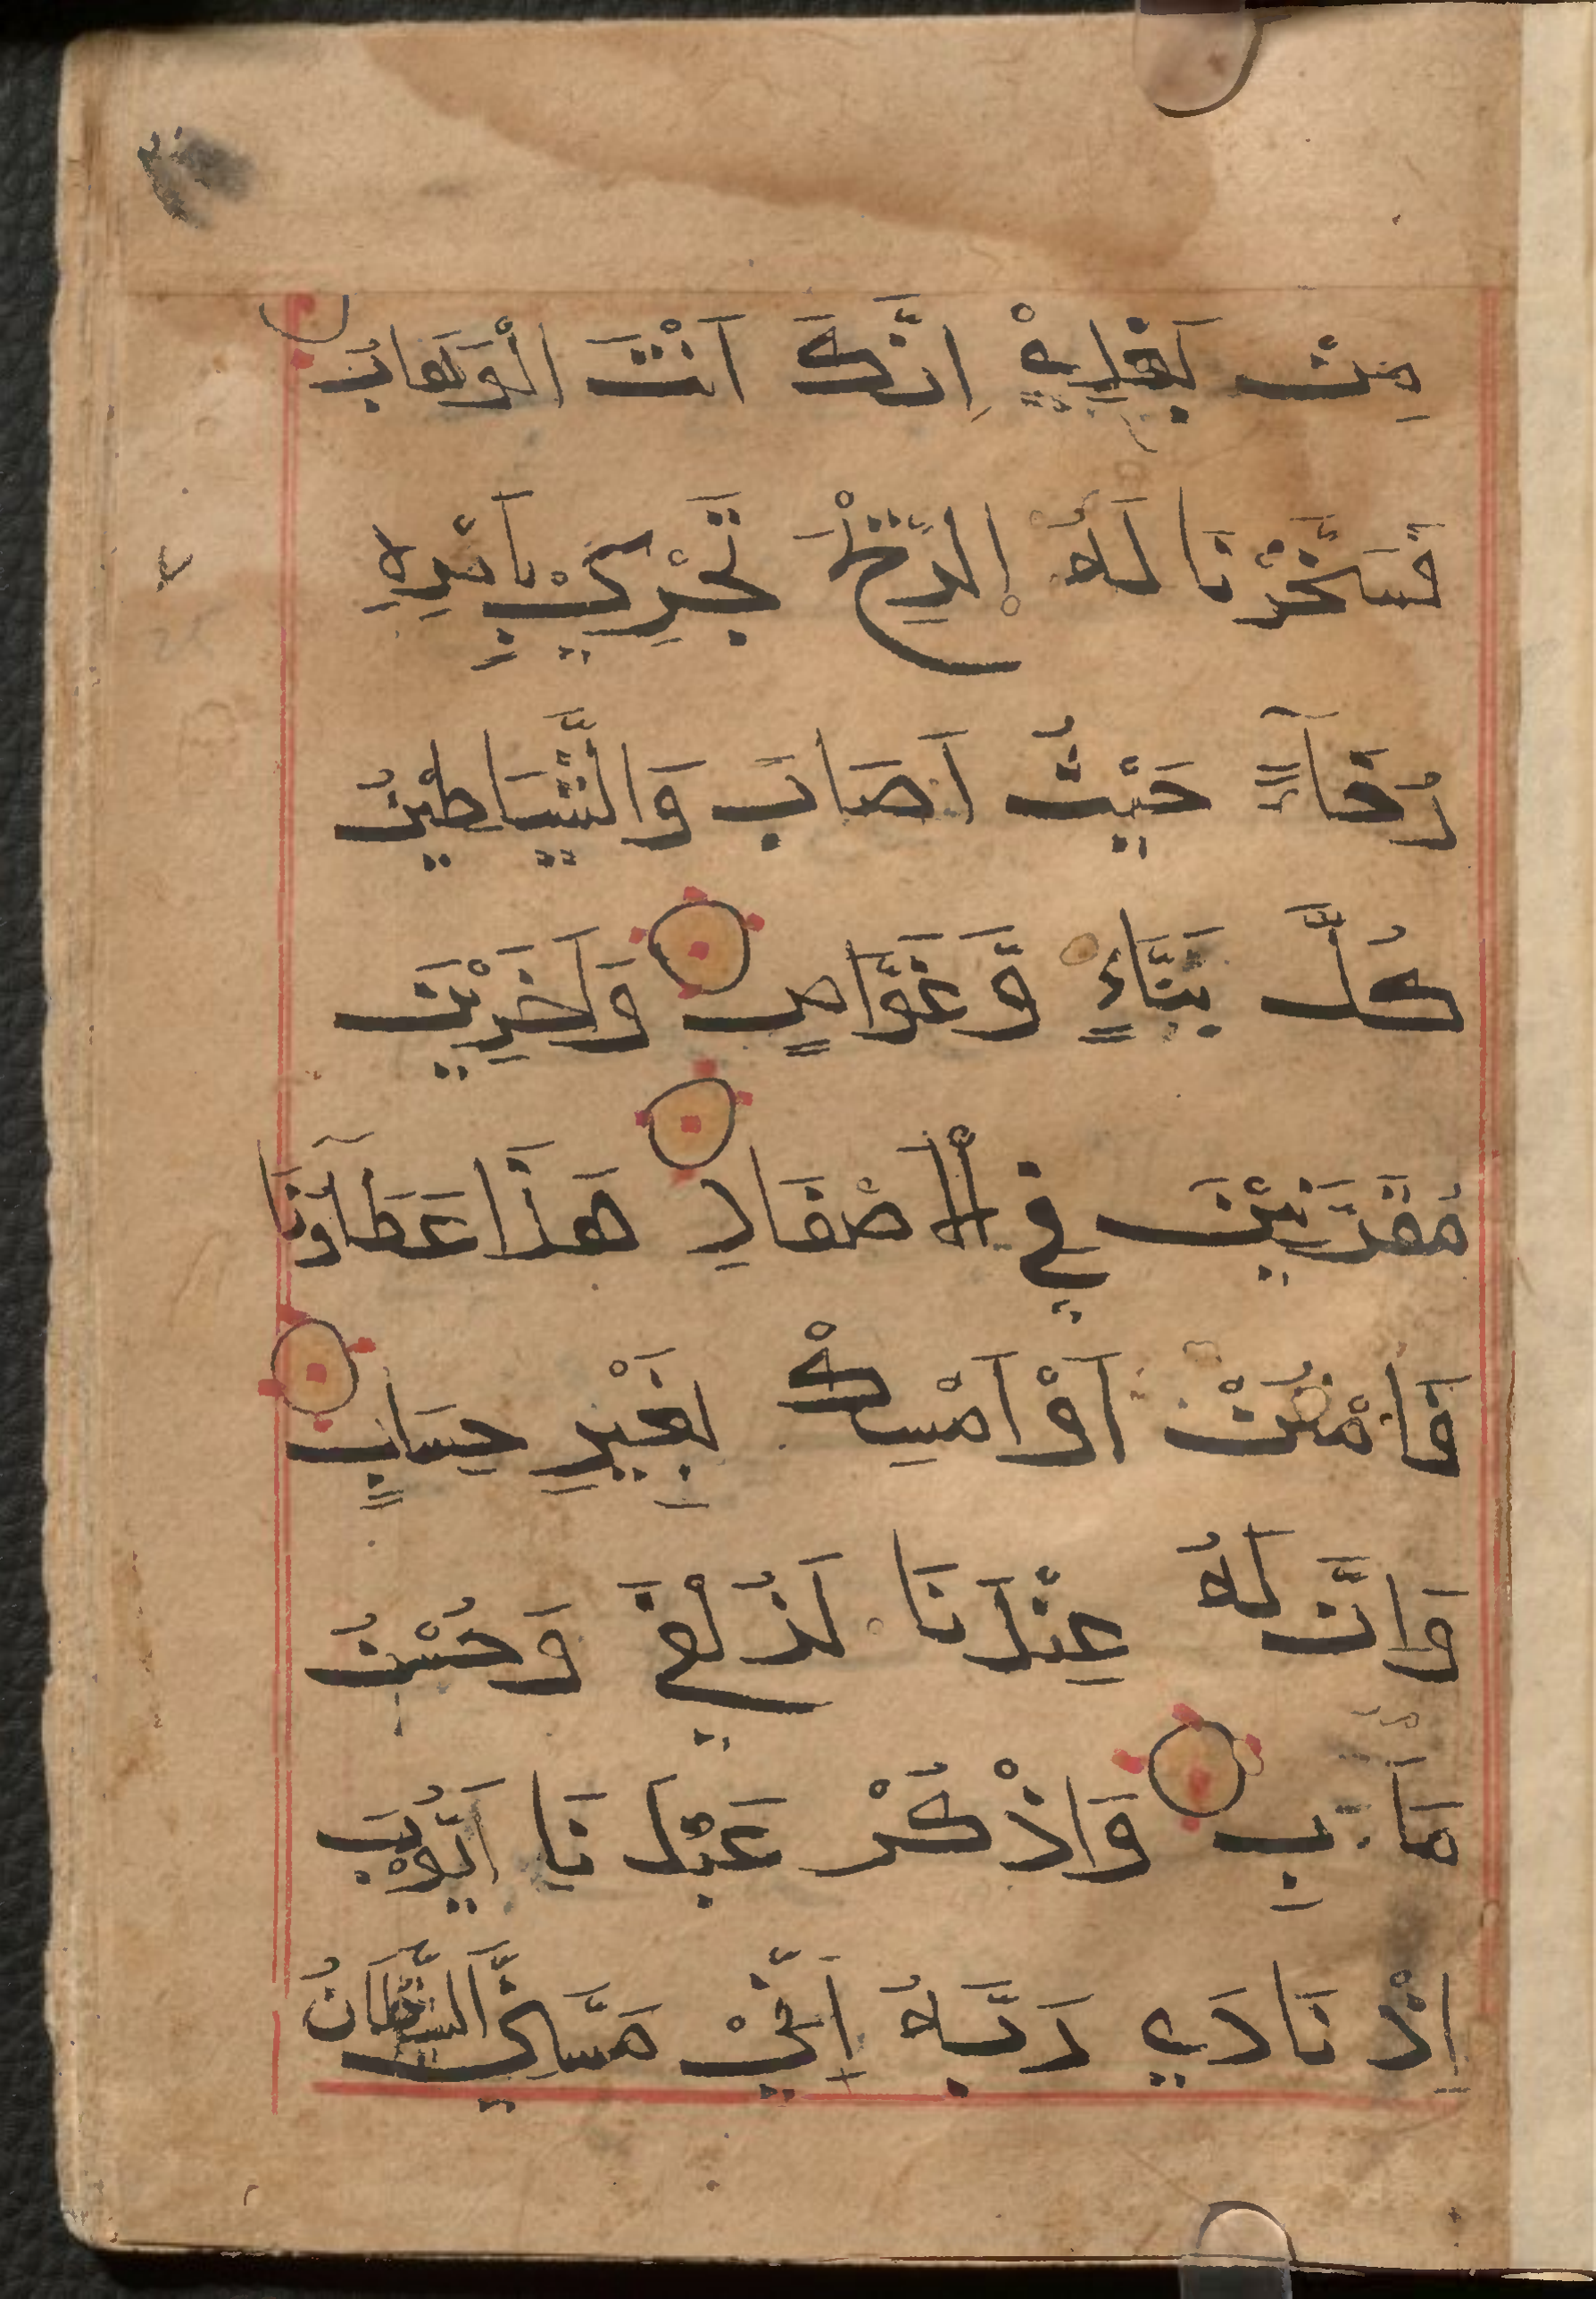 مِنْ بَعْدِيْ اِنَّكَ اَنْتَ الْوَهَابُ
فَسَخَّرْنَا لَهُ الرِّيْحَ تَجْرِيْ بِاَمْرِهِ
رُخَآءً حَيْثُ اَصَابَ وَالشَّيَاطِيْنُ
كُلَّ بَنَّاءٍ وَّغَوَّاصٍ وَاٰخَرِيْنَ
مُقَرَّنِيْنَ فِي الْاَصْفَادِ هَذَا عَطَآؤُنَا
فَامْنُنْ اَوْ اَمْسِكْ بِغَيْرِ حِسَابٍ
وَاِنَّ لَهُ عِنْدَنَا لَزُلْفَي وَحُسْنُ
مَاٰبِ وَاذْكُرْ عَبْدَنَا اَيُّوْبَ
اِذْ نَادَي رَبَّهُ اَنِّيْ مَسَّنِيَ الشَّيْطَانُ